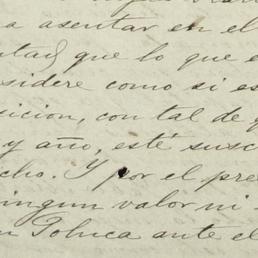 a asentar en el
que lo que e
sidere como si es
sicion, con tal de q
y año, esté susc
cho. Y por el pre
ningun valor ni
n Toluca ante el